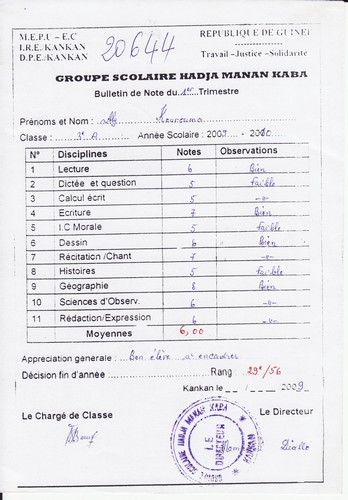 M.E.P.U – E.C
I.R.E./KANKAN
D.P.E./KANKAN
20644
REPUBLIQUE DE GUINEE
Travail -Justice -Solidarité
GROUPE SCOLAIRE HADJA MANAN KABA
Bulletin de Note du 1er Trimestre
Prénoms et Nom : Aly Kourouma
Classe : 3e A Année Scolaire : 2009 - 2010
N° Disciplines Notes Observations
1 Lecture 6 Bien
2 Dictée et question 5 Faible
3 Calcul écrit 5 -"-
4 Ecriture 7 Bien
5 I.C Morale 5 Faible
6 Dessin 6 Bien
7 Récitation /Chant 7 -"-
8 Histoires 5 Faible
9 Géographie 8 Bien
10 Sciences d'Observ. 6 -"-
11 Rédaction/Expression 6 -"-
Moyennes 6,00
Appréciation générale : Bon élève à encadrer
Décision fin d'année : Rang : 29e/56
Kankan le / 2009
Le Chargé de Classe Le Directeur
GROUPE SCOLAIRE HADJA MANAN KABA
LE DIRECTEUR
KANKAN